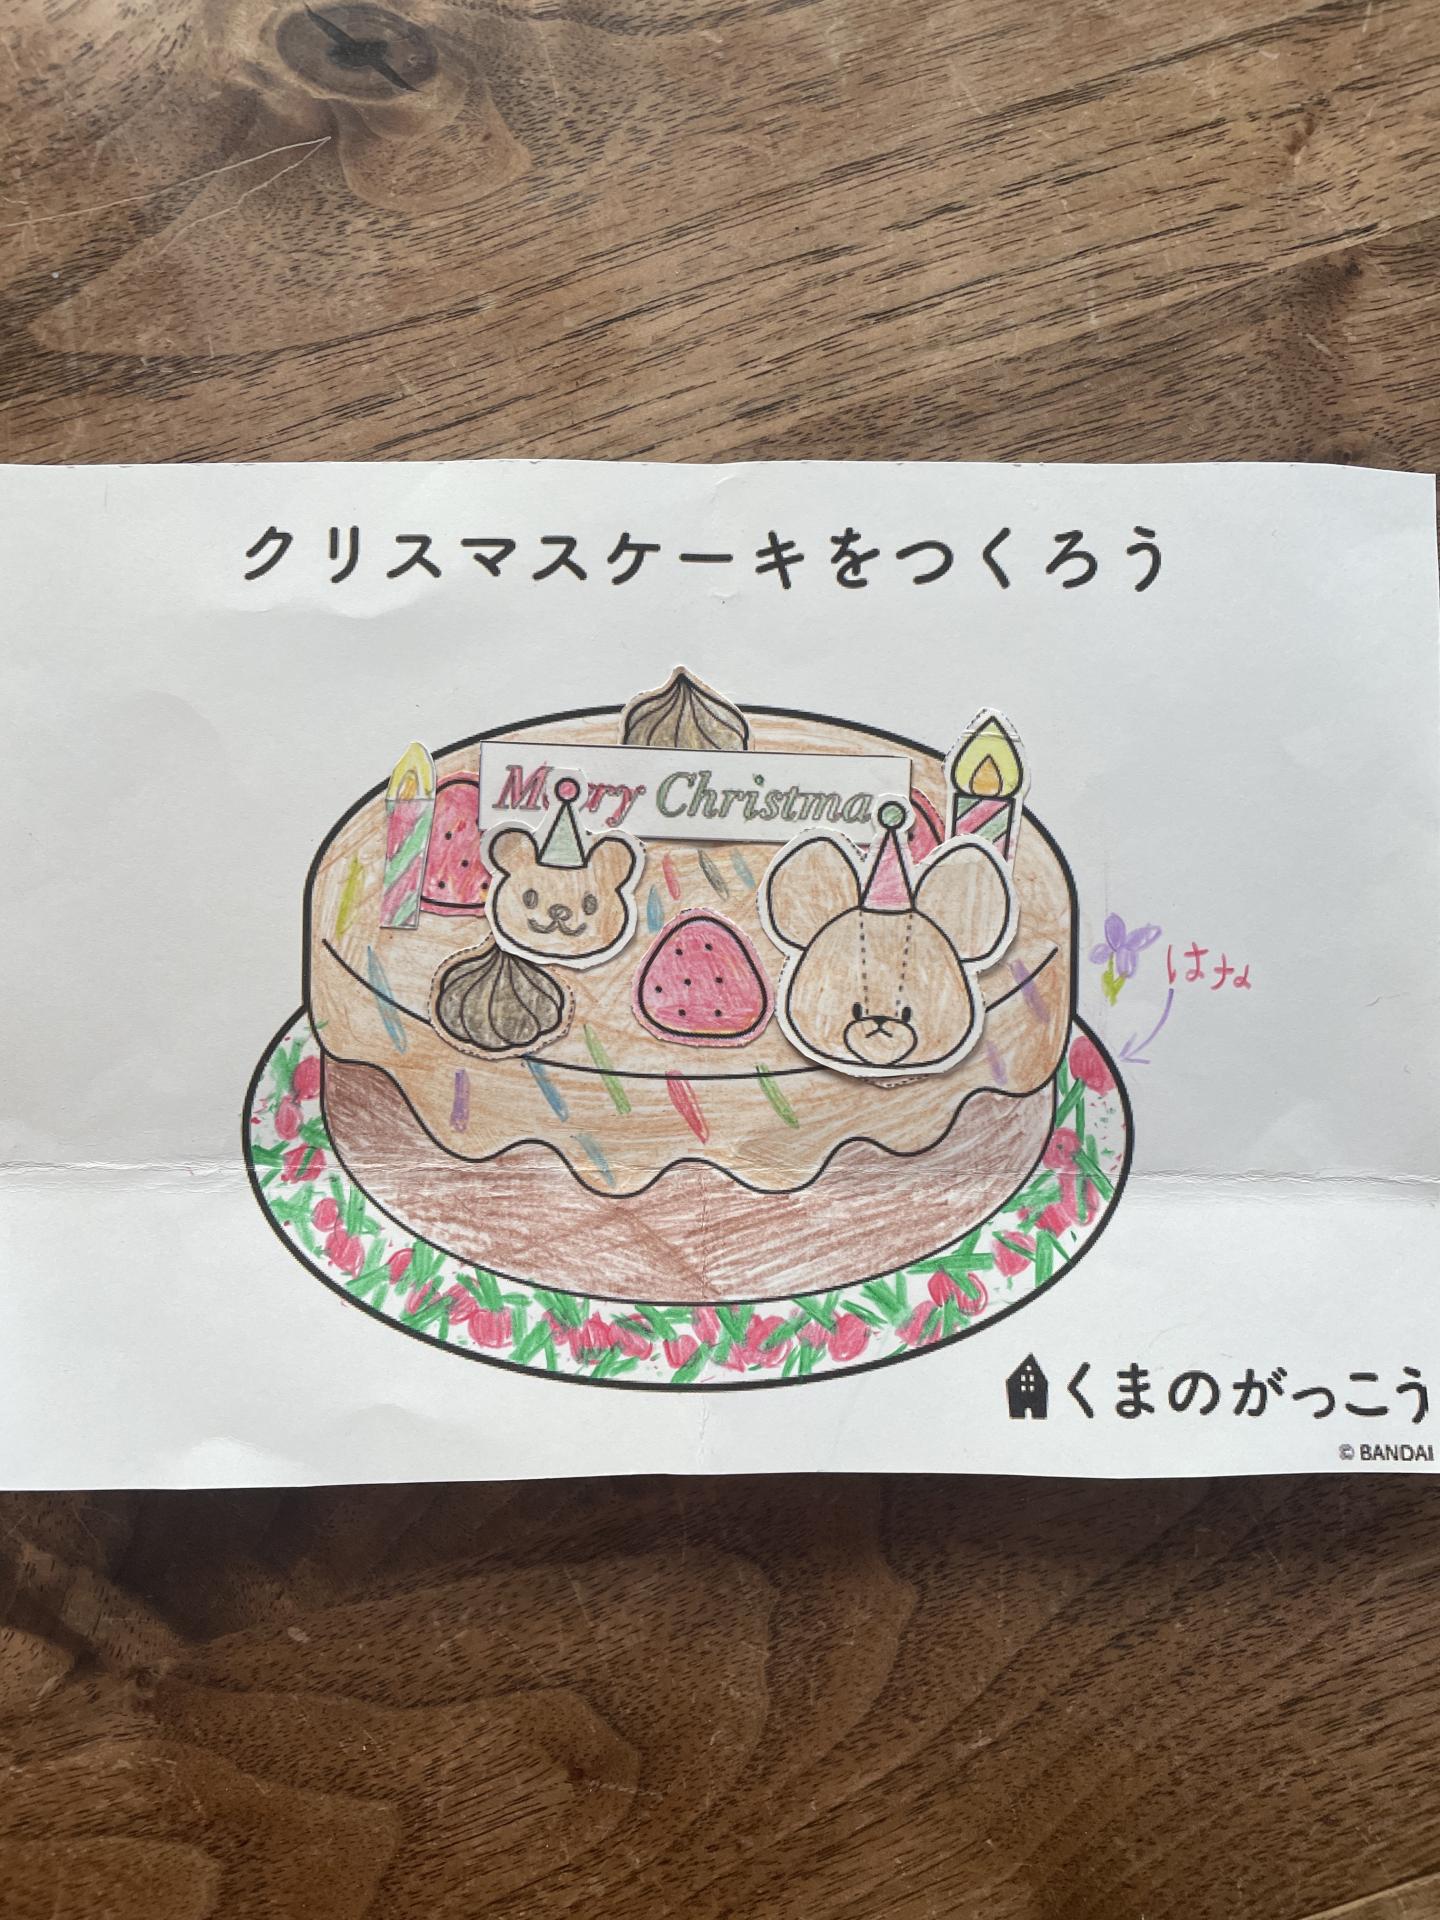 クリスマスケーキをつくろう
Merry Christma
はな
くまのがっこう
© BANDAI